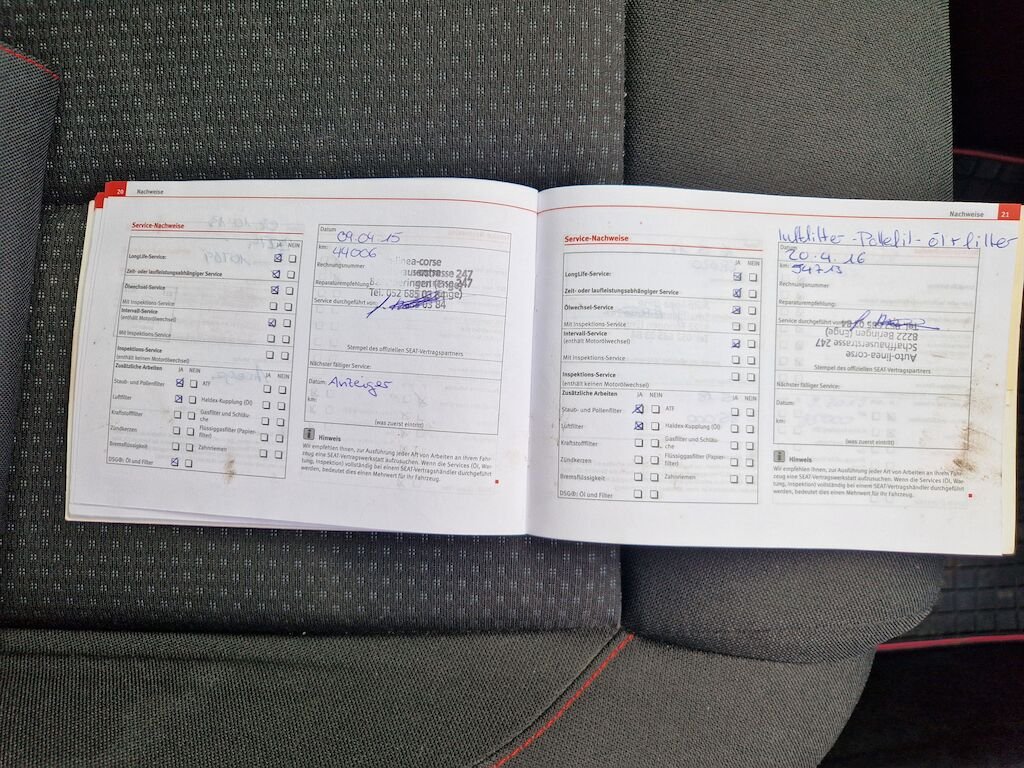 20 Nachweise
Service-Nachweise
JA NEIN
LongLife-Service:
Zeit- oder laufleistungsabhängiger Service
Ölwechsel-Service
Mit Inspektions-Service
Intervall-Service
(enthält Motorölwechsel)
Mit Inspektions-Service
Inspektions-Service
(enthält keinen Motorölwechsel)
Zusätzliche Arbeiten JA NEIN JA NEIN
Staub- und Pollenfilter ATF
Luftfilter Haldex-Kupplung (Öl)
Kraftstofffilter Gasfilter und Schläu-
che
Zündkerzen Flüssiggasfilter (Papier-
filter)
Bremsflüssigkeit Zahnriemen
DSG®: Öl und Filter
Datum 09.04.15
km: 44006
Rechnungsnummer
Reparaturempfehlung:
Service durchgeführt von:
inea-corse
strasse 247
Tel. 052 685 03 84
Stempel des offiziellen SEAT-Vertragspartners
Nächster fälliger Service:
Datum: Anzeiger
km:
(was zuerst eintritt)
Hinweis
Wir empfehlen Ihnen, zur Ausführung jeder Art von Arbeiten an Ihrem Fahr-
zeug eine SEAT-Vertragswerkstatt aufzusuchen. Wenn die Services (Öl, War-
tung, Inspektion) vollständig bei einem SEAT-Vertragshändler durchgeführt
werden, bedeutet dies einen Mehrwert für Ihr Fahrzeug.
Nachweise 21
Service-Nachweise
JA NEIN
LongLife-Service:
Zeit- oder laufleistungsabhängiger Service
Ölwechsel-Service
Mit Inspektions-Service
Intervall-Service
(enthält Motorölwechsel)
Mit Inspektions-Service
Inspektions-Service
(enthält keinen Motorölwechsel)
Zusätzliche Arbeiten JA NEIN JA NEIN
Staub- und Pollenfilter ATF
Luftfilter Haldex-Kupplung (Öl)
Kraftstofffilter Gasfilter und Schläu-
che
Zündkerzen Flüssiggasfilter (Papier-
filter)
Bremsflüssigkeit Zahnriemen
DSG®: Öl und Filter
Datum 20.4.16
km: 54713
Rechnungsnummer
Reparaturempfehlung:
Service durchgeführt von:
Auto-linea-corse
Schaffhauserstrasse 247
8222 Beringen (Enge)
Stempel des offiziellen SEAT-Vertragspartners
Nächster fälliger Service:
Datum:
km:
(was zuerst eintritt)
Hinweis
Wir empfehlen Ihnen, zur Ausführung jeder Art von Arbeiten an Ihrem Fahr-
zeug eine SEAT-Vertragswerkstatt aufzusuchen. Wenn die Services (Öl, War-
tung, Inspektion) vollständig bei einem SEAT-Vertragshändler durchgeführt
werden, bedeutet dies einen Mehrwert für Ihr Fahrzeug.